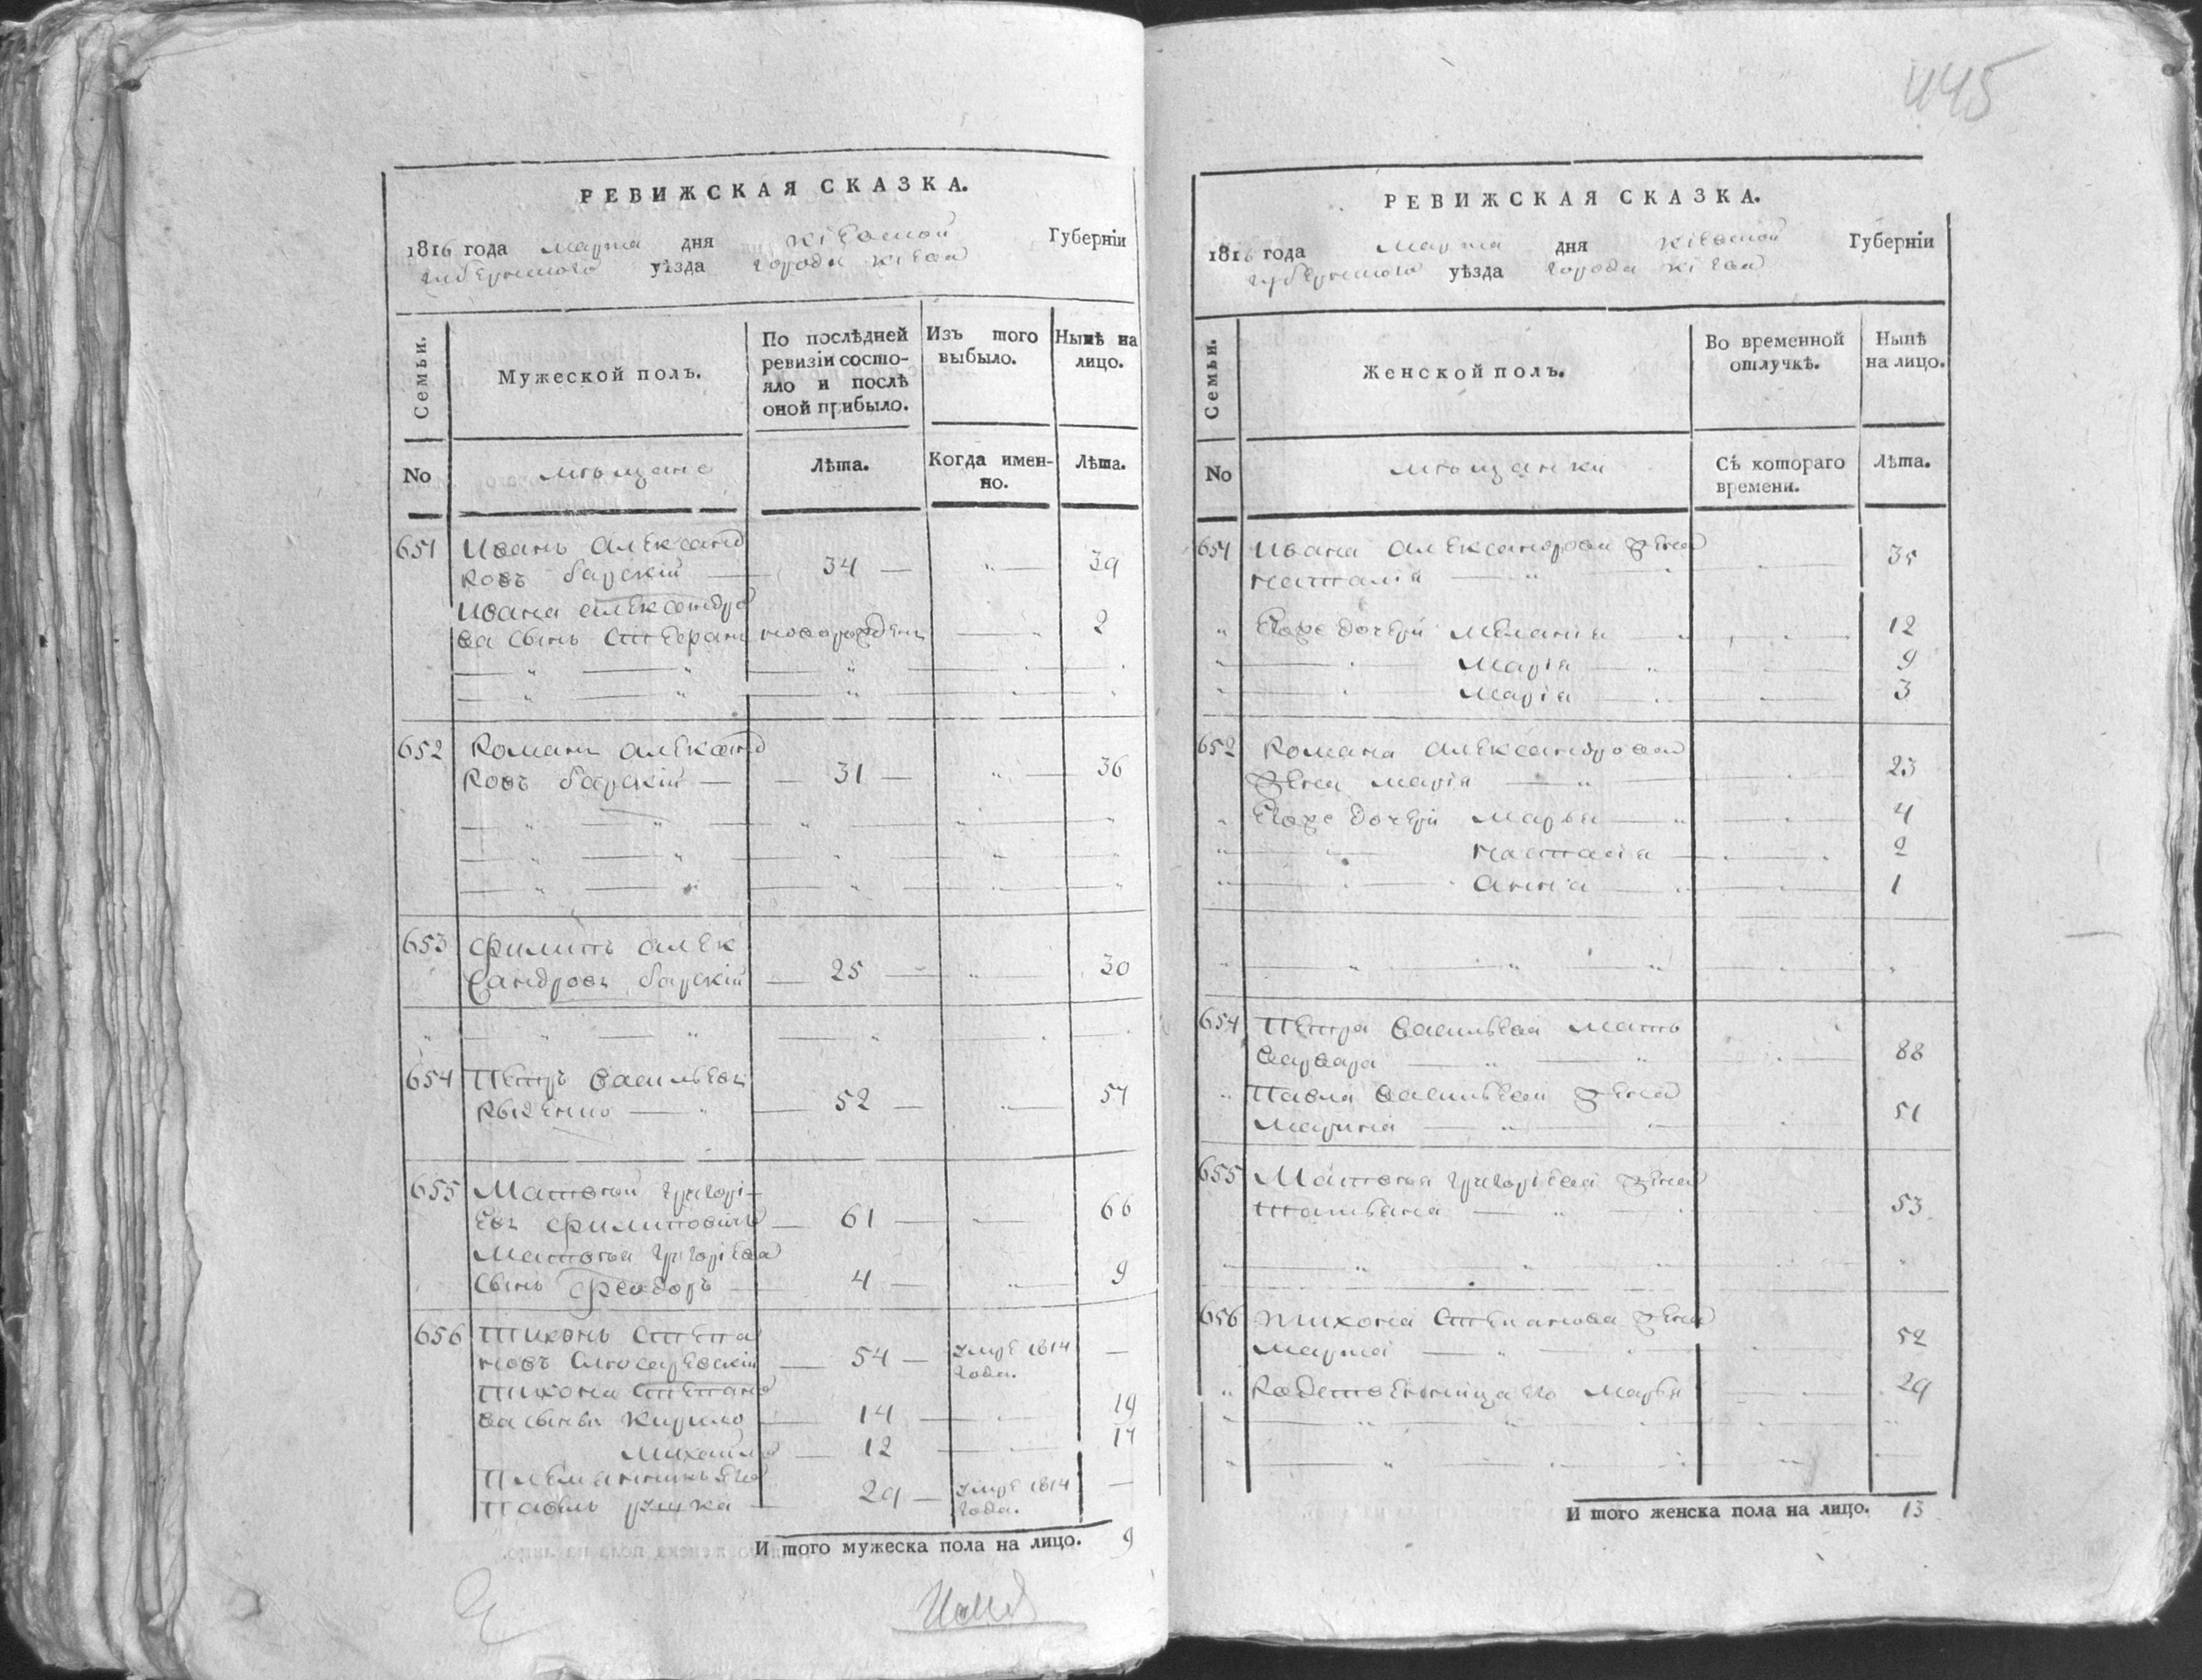 445
РЕВИЖСКАЯ СКАЗКА.
1816 года марта дня Кіевской Губерніи
губернского уѣзда города Кіева
Семьи. Мужеской полъ. По послѣдней ревизіи состояло и послѣ оной прибыло. Изъ того выбыло. Нынѣ на лицо.
No мѣщане Лѣта. Когда именно. Лѣта.
651 Иванъ Александ
ровъ барскій 34 39
Ивана Александро
ва сынъ Стефанъ новорожденъ 2
652 Романъ Александ
ровъ барскій 31 36
653 Филипъ Алек
сандровъ барскій 25 30
654 Петръ Васильевъ
52 57
655 Матвѣй Григорі-
евъ Филиповичъ 61 66
Матвѣя Григоріева
сынъ Феодоръ 4 9
656 Тихонъ Степа
новъ Слюсаревскій 54 умре 1814
года.
Тихона Степано
ва сыны Кирило 14 19
Михайло 12 17
Племянникъ его
Павелъ 29 умре 1814
года.
И того мужеска пола на лицо. 9
РЕВИЖСКАЯ СКАЗКА.
1816 года марта дня Кіевской Губерніи
губернского уѣзда города Кіева
Семьи. Женской полъ. Во временной отлучкѣ. Нынѣ на лицо.
No мѣщанки Съ котораго времени. Лѣта.
651 Ивана Александрова жена
Наталія 35
Егоже дочери Меланія 12
Марія 9
Марія 3
652 Романа Александрова
жена Марія 23
Егоже дочери Марья 4
Наталія 2
Анна 1
654 Петра Васильева мать
Варвара 88
Павла Васильева жена
Марина 51
655 Матвѣя Григоріева жена
Татьяна 53
656 Тихона Степанова жена
Марта 52
его Марья 29
И того женска пола на лицо. 13